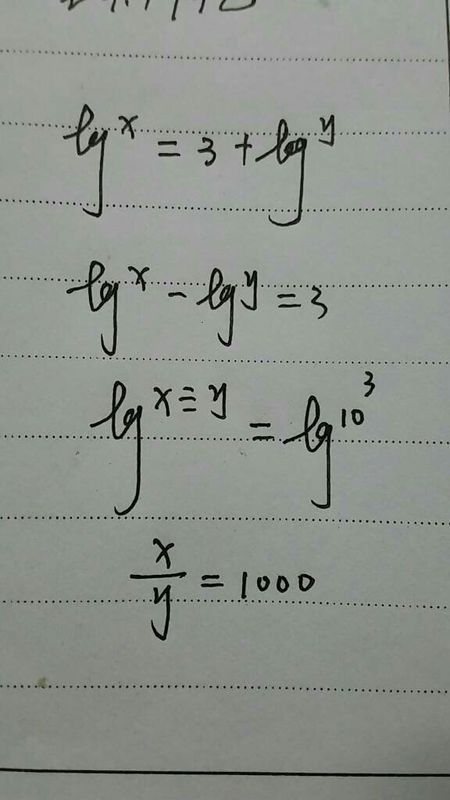 lg x = 3 + lg y
lg x - lg y = 3
lg x ÷ y = lg 10³
x/y = 1000